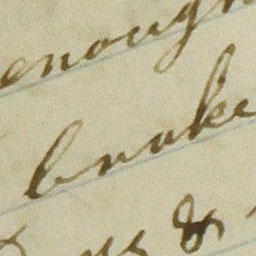 enough
broke
&